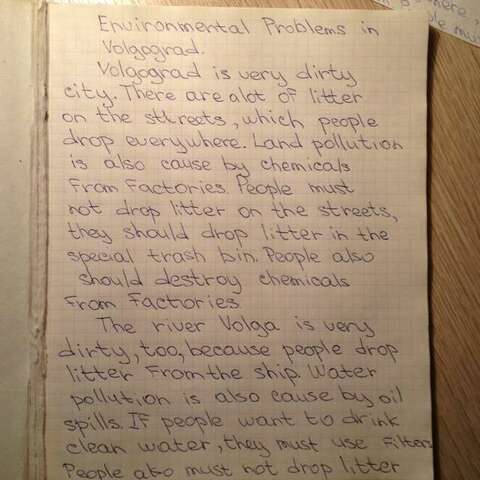 Environmental Problems in
Volgograd.
Volgograd is very dirty
city. There are alot of litter
on the streets, which people
drop everywhere. Land pollution
is also cause by chemicals
From Factories. People must
not drop litter on the streets,
they should drop litter in the
special trash bin. People also
should destroy chemicals
From Factories.
The river Volga is very
dirty, too, because people drop
litter From the ship. Water
pollution is also cause by oil
spills. If people want to drink
clean water, they must use Filters
People also must not drop litter